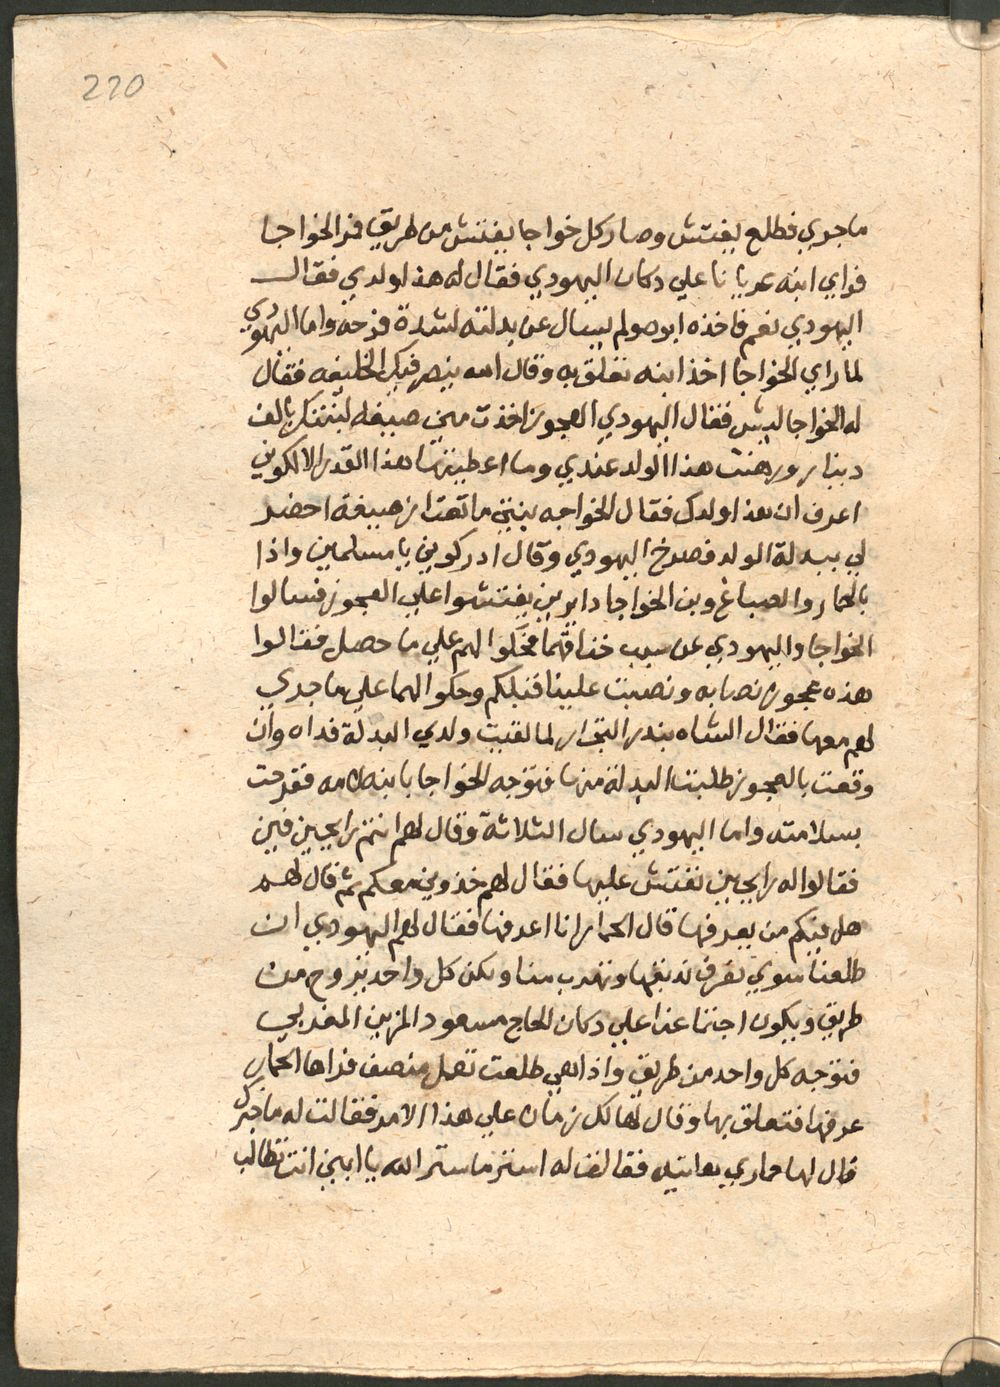 220
ماجري فطلع يفتش وصار كل خواجا يفتش من طريق فمر الخواجا
فراي ابنه عريانا علي دكان اليهودي فقال له هذا ولدي فقال
اليهودي نعم فاخذه ابوه ولم يسال عن بدلته لشدة فرحه واما اليهودي
لما راي الخواجا اخذ ابنه تعلق به وقال الله ينصر فيك الخليفه فقال
له الخواجا ليش فقال اليهودي العجوز اخذت مني صيغه لبنتك بالف
دينار ورهنت هذا الولد عندي وما اعطيتها هذا القدر الا لكوني
اعرف ان هذا ولدك فقال الخواجه بنتي ما تعتاز صيغة احضر
لي ببدلة الولد فصرخ اليهودي وقال ادركوني يا مسلمين واذا
بالحمار والصباغ وبن الخواجا دايرين يفتشوا علي العجوز فسالوا
الخواجا واليهودي عن سبب خناقهما فحكوا لهم علي ما حصل فقالوا
هذه عجوز نصابه ونصبت علينا قبلكم وحكوا لهما علي ما جري
لهم معها فقال الشاه بندر التجار لما لقيت ولدي البدلة فداه وان
وقعت بالعجوز طلبت البدلة منها فتوجه الخواجا بابنه لامه ففرحت
بسلامته واما اليهودي سال الثلاثة وقال لهم انتم رايحين فين
فقالوا له رايحين نفتش عليها فقال لهم خذوني معكم ثم قال لهم
هل فيكم من يعرفها قال الحمار انا اعرفها فقال لهم اليهودي ان
طلعنا سوي تعرف ندبغها وتهرب منا ولكن كل واحد يروح من
طريق ويكون اجتماعنا علي دكان الحاج مسعود المزين المغربي
فتوجه كل واحد من طريق واذا هي طلعت تعمل منصف فراها الحمار
عرفها فتعلق بها وقال لها لك زمان علي هذا الامر فقالت له ما خبرك
قال لها حماري هاتيه فقالت له استر ما ستر الله يا ابني انت تطالب